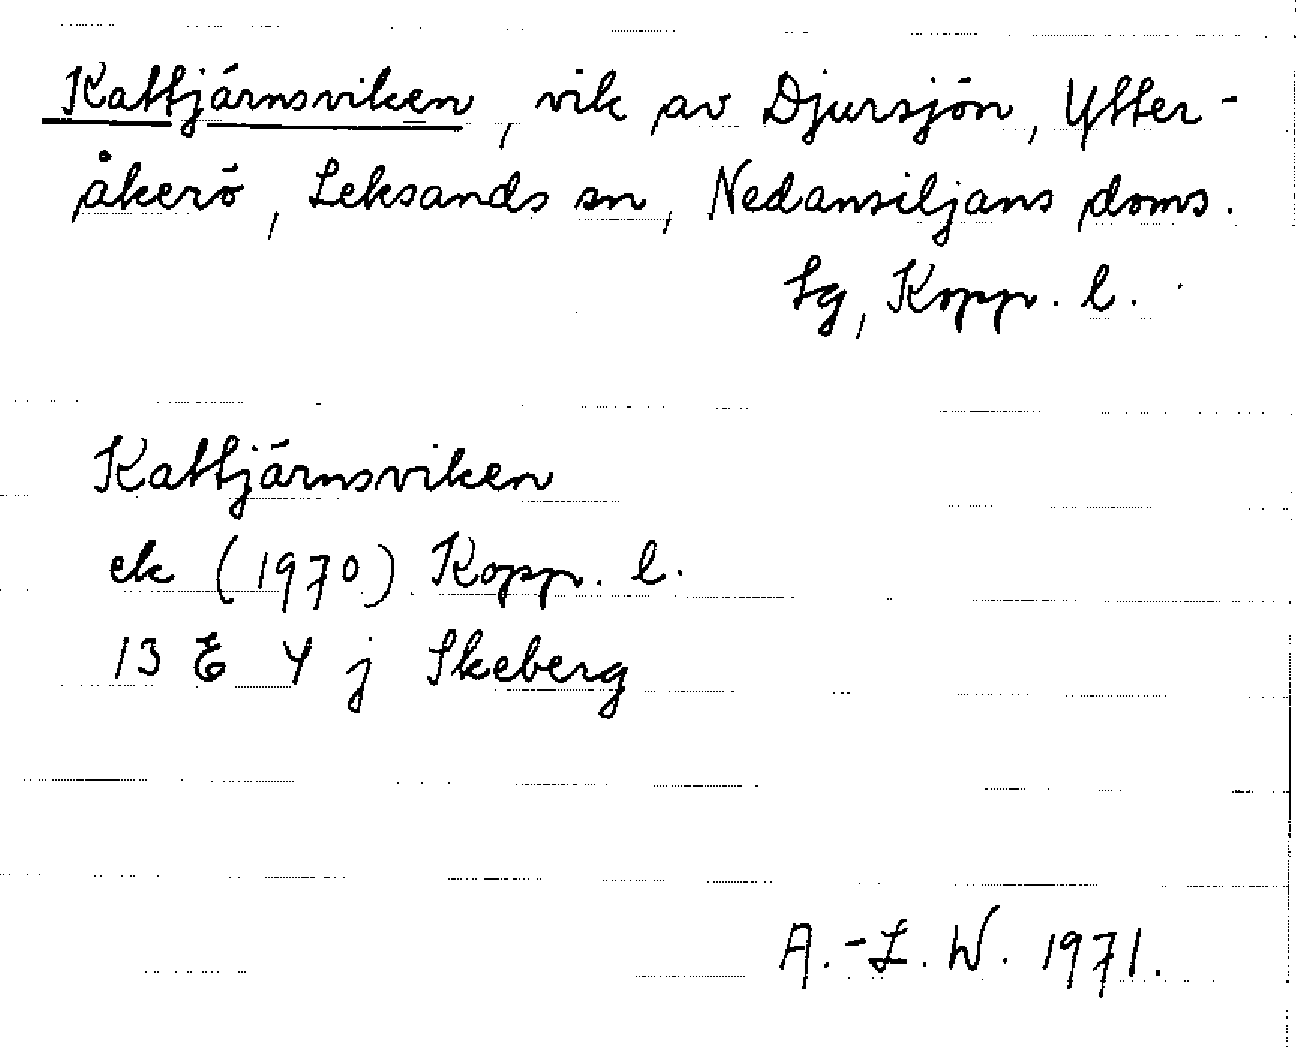 Kattjärnsviken, vik av Djursjön, Ytter-
åkerö, Leksands sn, Nedansiljans doms.
Sg, Kopp. l.
Kattjärnsviken
ek (1970) Kopp. l.
13 E 4 j Skeberg
A.-L. W. 1971.